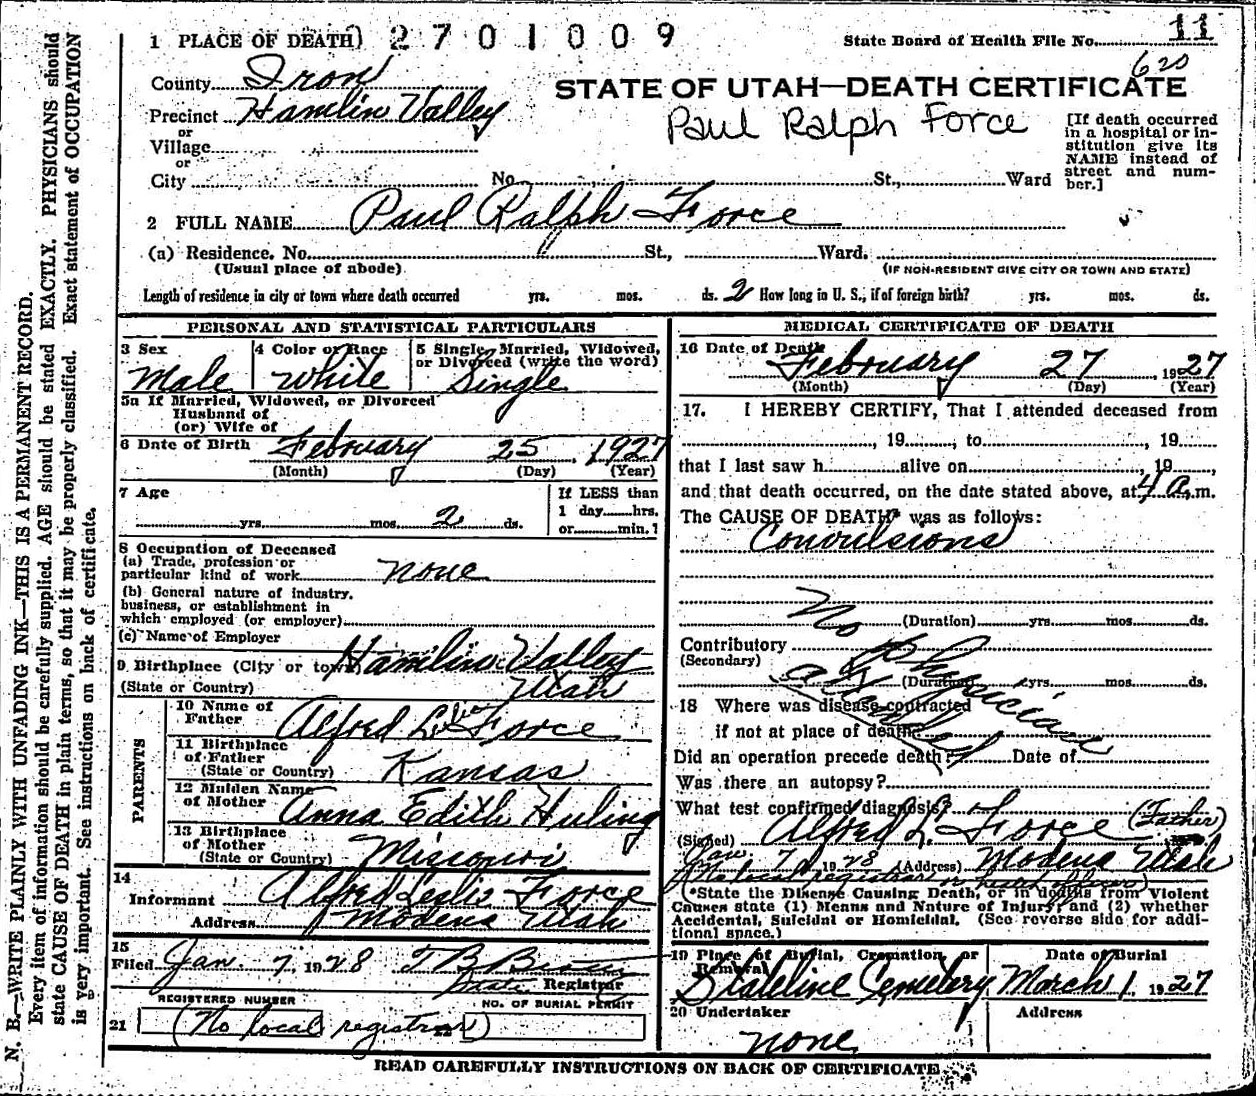 1 PLACE OF DEATH 2701009
State Board of Health File No. 11
620
County Iron
STATE OF UTAH—DEATH CERTIFICATE
Precinct Hamlin Valley
Paul Ralph Force
or
Village
or
City No. St., Ward
[If death occurred
in a hospital or in-
stitution give its
NAME instead of
street and num-
ber.]
2 FULL NAME Paul Ralph Force
(a) Residence. No. St., Ward.
(Usual place of abode) (IF NON-RESIDENT GIVE CITY OR TOWN AND STATE)
Length of residence in city or town where death occurred yrs. mos. ds. 2 How long in U. S., if of foreign birth? yrs. mos. ds.
PERSONAL AND STATISTICAL PARTICULARS
3 Sex
Male
4 Color or Race
White
5 Single, Married, Widowed,
or Divorced (write the word)
Single
5a If Married, Widowed, or Divorced
Husband of
(or) Wife of
6 Date of Birth February 25, 1927
(Month) (Day) (Year)
7 Age
yrs. mos. 2 ds.
If LESS than
1 day hrs.
or min.?
8 Occupation of Deceased
(a) Trade, profession or
particular kind of work none
(b) General nature of industry,
business, or establishment in
which employed (or employer)
(c) Name of Employer
9 Birthplace (City or town) Hamlin Valley
(State or Country) Utah
PARENTS
10 Name of
Father Alfred Leslie Force
11 Birthplace
of Father
(State or Country) Kansas
12 Maiden Name
of Mother Anna Edith Huling
13 Birthplace
of Mother
(State or Country) Missouri
14
Informant Alfred Leslie Force
Address Modena Utah
15
Filed Jan. 7 1928 T B
State Registrar
REGISTERED NUMBER NO. OF BURIAL PERMIT
21 (No local registrar) 22
MEDICAL CERTIFICATE OF DEATH
16 Date of Death
February 27 1927
(Month) (Day) (Year)
17. I HEREBY CERTIFY, That I attended deceased from
, 19 , to , 19
that I last saw h alive on , 19 ,
and that death occurred, on the date stated above, at 4 a. m.
The CAUSE OF DEATH* was as follows:
Convulsions
(Duration) yrs. mos. ds.
Contributory
(Secondary)
(Duration) yrs. mos. ds.
No Physician attended
18 Where was disease contracted
if not at place of death?
Did an operation precede death? Date of
Was there an autopsy?
What test confirmed diagnosis?
(Signed) Alfred L. Force (Father)
Jan 7 1928 (Address) Modena Utah
(No local registrar
(*State the Disease Causing Death, or in deaths from Violent
Causes state (1) Means and Nature of Injury; and (2) whether
Accidental, Suicidal or Homicidal. (See reverse side for addi-
tional space.)
19 Place of Burial, Cremation, or
Removal
Stateline Cemetery
Date of Burial
March 1 1927
20 Undertaker
none
Address
READ CAREFULLY INSTRUCTIONS ON BACK OF CERTIFICATE
N. B.—WRITE PLAINLY WITH UNFADING INK—THIS IS A PERMANENT RECORD.
Every item of information should be carefully supplied. AGE should be stated EXACTLY. PHYSICIANS should
state CAUSE OF DEATH in plain terms, so that it may be properly classified. Exact statement of OCCUPATION
is very important. See instructions on back of certificate.